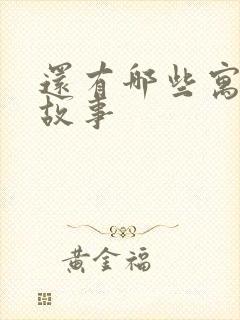 還有哪些寓
故事
黃金福